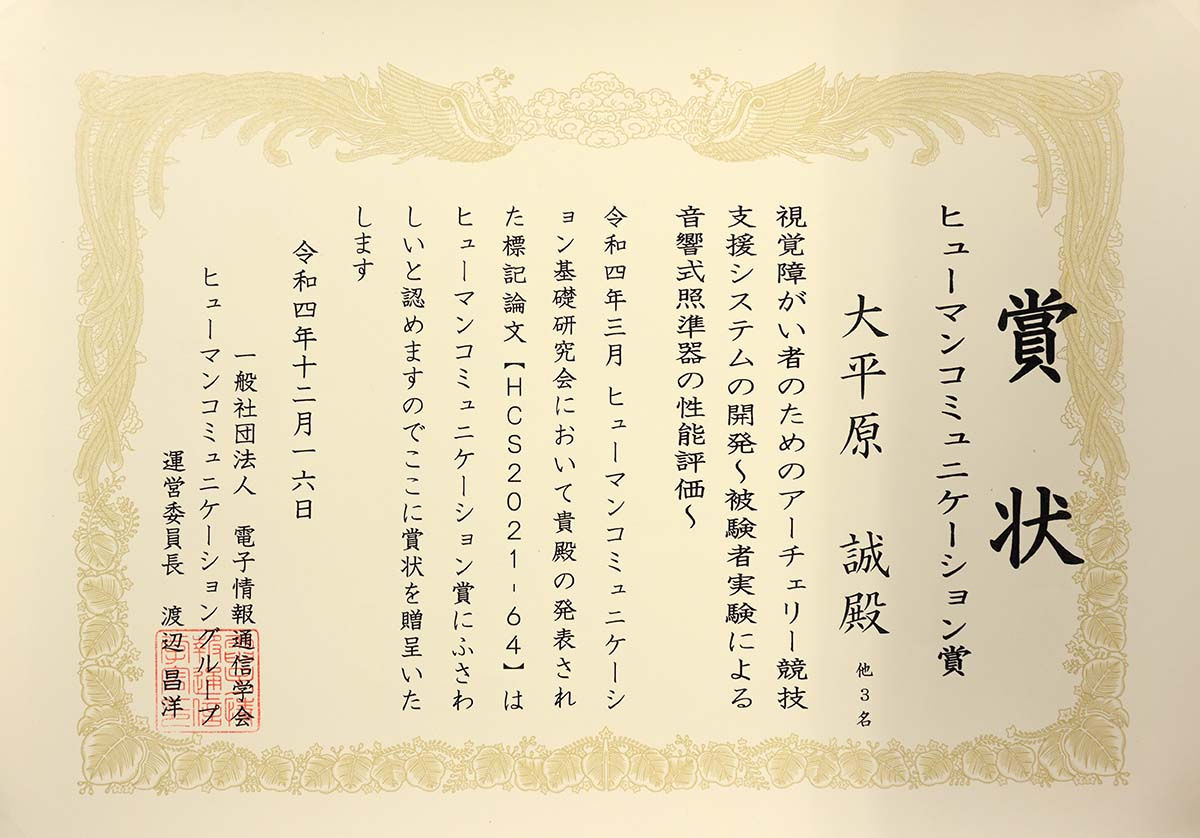 賞状
ヒューマンコミュニケーション賞
大平原 誠殿 他3名
視覚障がい者のためのアーチェリー競技
支援システムの開発～被験者実験による
音響式照準器の性能評価～
令和四年三月 ヒューマンコミュニケーシ
ョン基礎研究会において貴殿の発表され
た標記論文【HCS2021-64】は
ヒューマンコミュニケーション賞にふさわ
しいと認めますのでここに賞状を贈呈いた
します
令和四年十二月一六日
一般社団法人 電子情報通信学会
ヒューマンコミュニケーショングループ
運営委員長 渡辺 昌洋